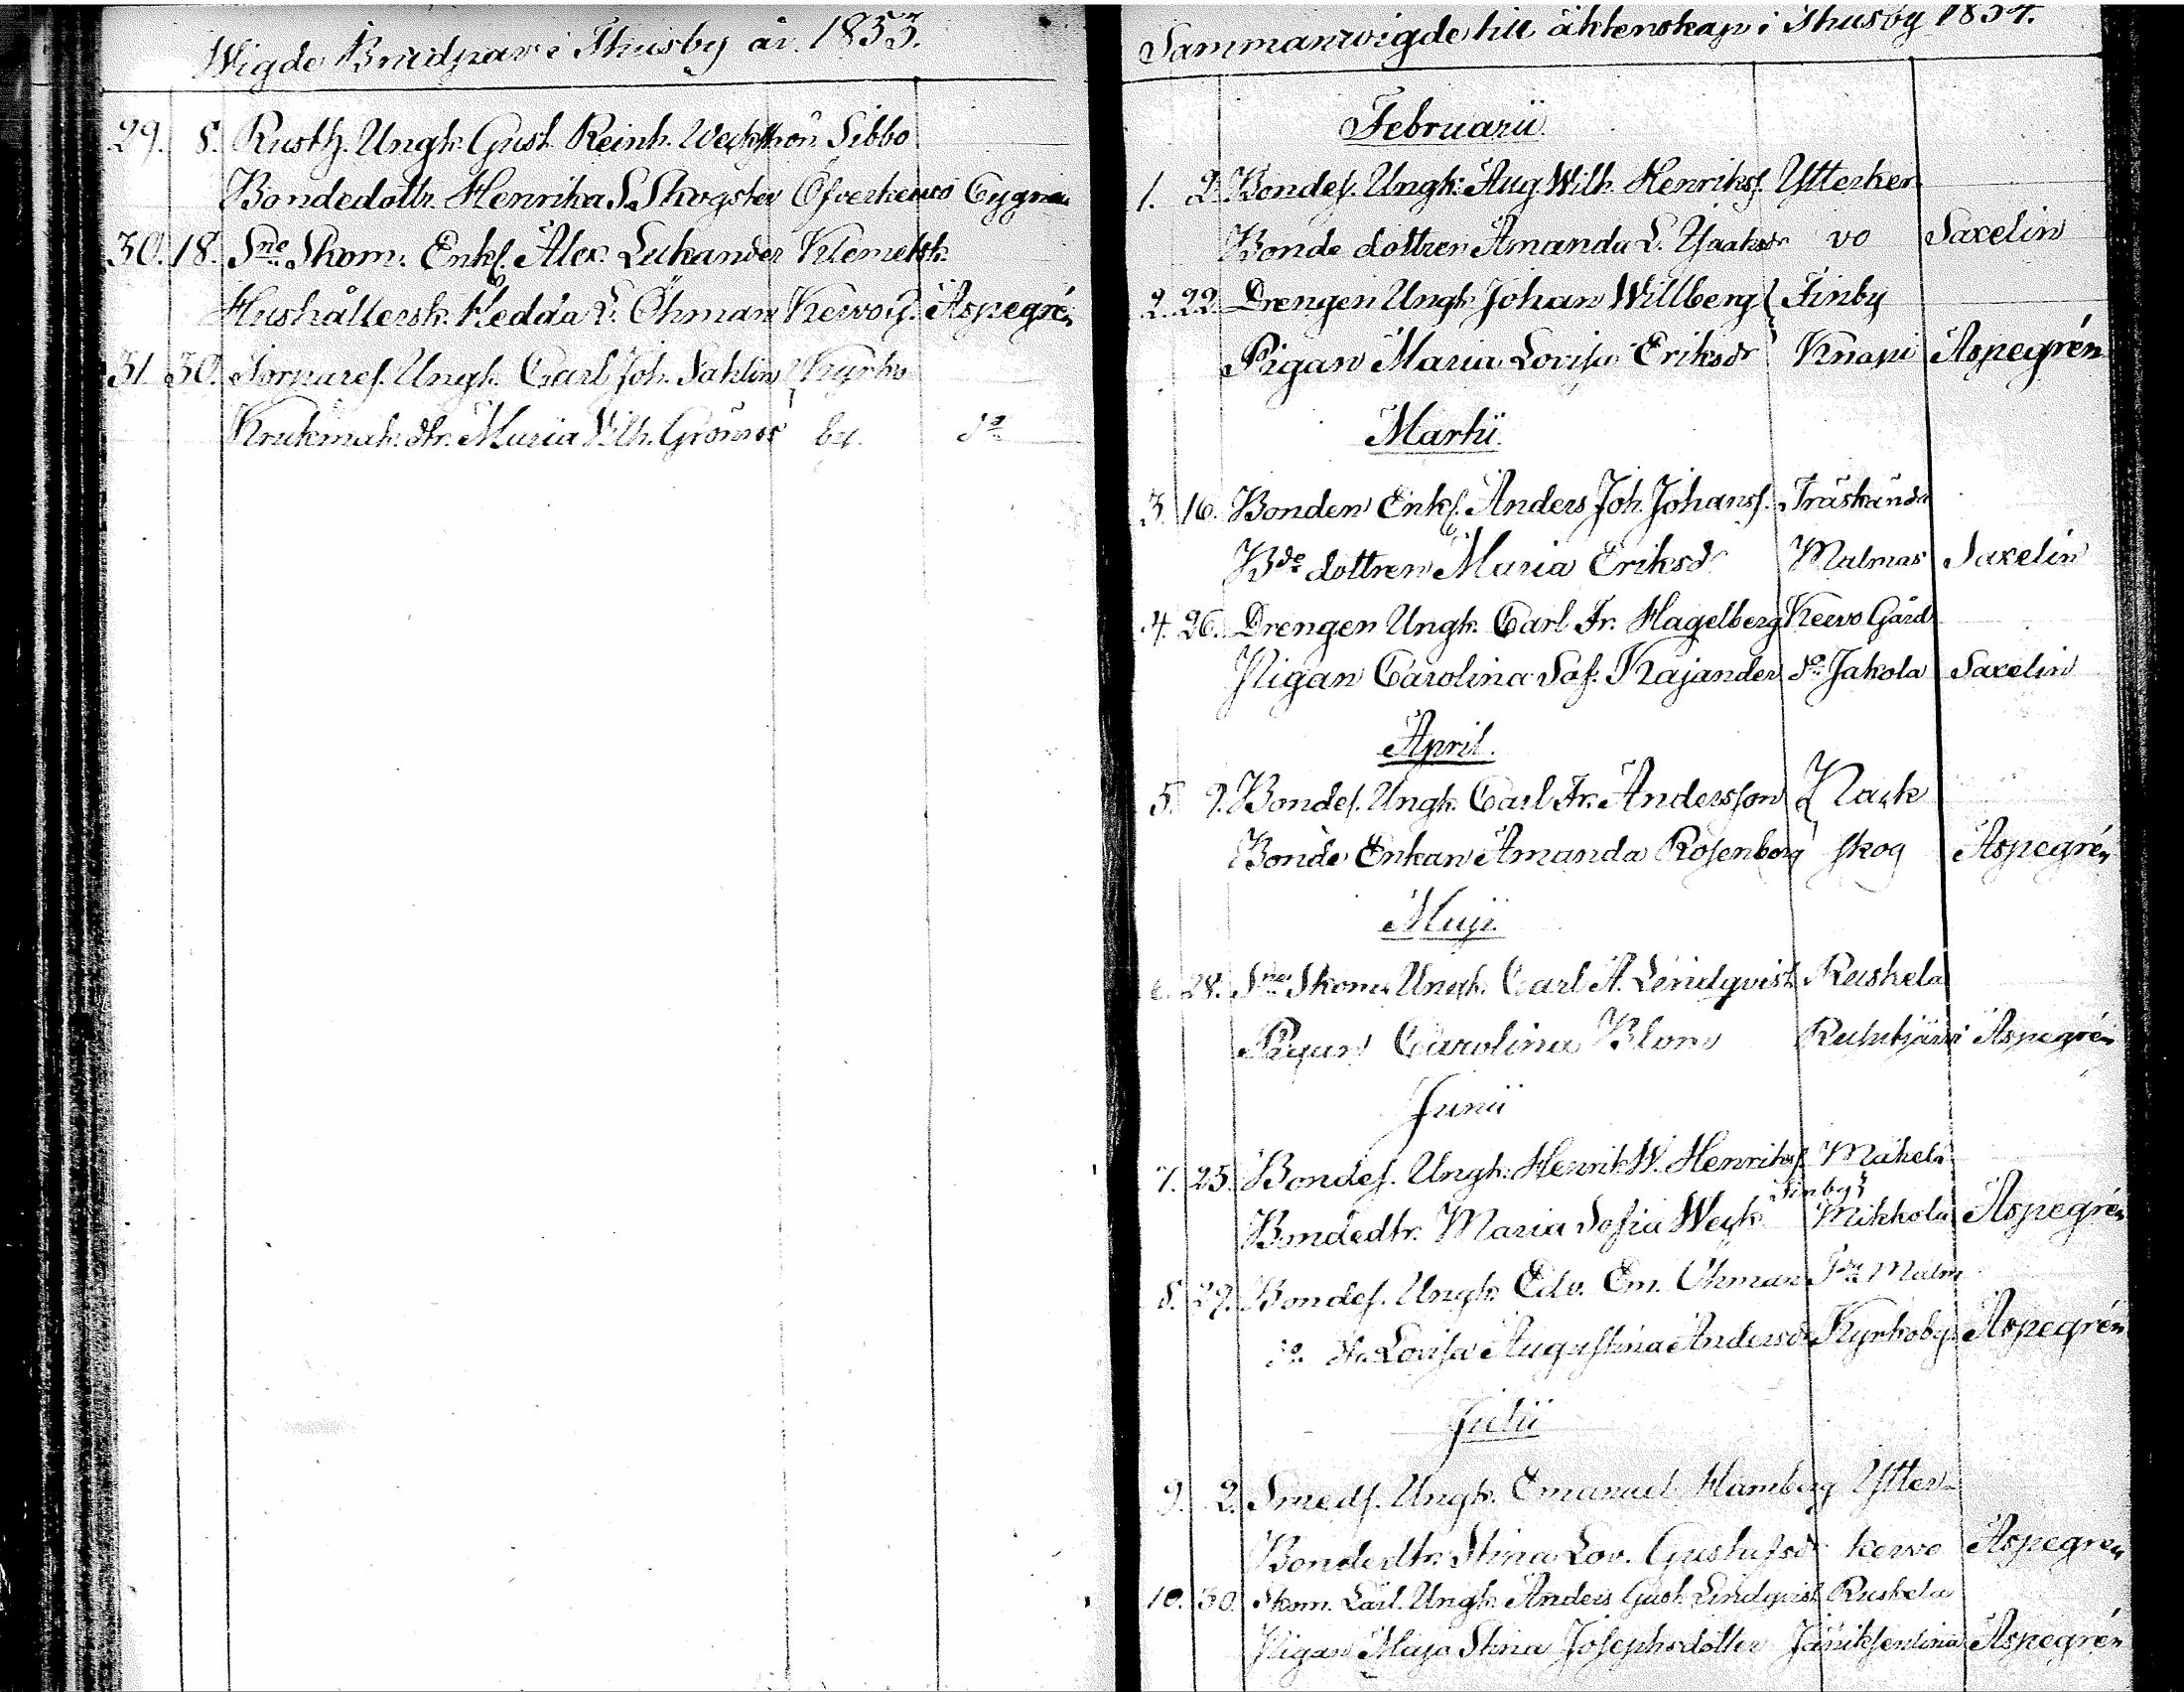 Wigde Brudpar i Thusby år 1853.
29. 8. Rusth. Ungk. Gust. Reinh. Weckström Sibbo
Bondedottr. Henrika S. Skogster Öfverkervo Cygnæus
30. 18. Sne Skom. Enkl. Alex. Lukander Klemetsk.
Hushållersk. Hedda L. Öhman Kervo g. Aspegrén
31 30. Torpares. Ungk. Carl Joh. Sahlin Kyrko
Krukmak. dtr. Maria Vilh. Grönroos by. do
Sammanwigde till äktenskap i Thusby 1854.
Februarii
1. 2. Bondes. Ungk. Aug. Wilh. Henrikss. Ytterker
Bonde dottren Amanda L. Isaksdr vo Saxelin
2. 22. Drengen Ungk. Johan Willberg Finby
Pigan Maria Lovisa Eriksdr Knapi Aspegrén
Martii
3. 16. Bonden Enkl. Anders Joh. Johanss. Träskända
Bde dottren Maria Eriksdr Malmas Saxelin
4. 26. Drengen Ungk. Carl Fr. Hagelberg Kervo Gård
Pigan Carolina Sof. Kajander do Jakola Saxelin
April.
5. 9. Bondes. Ungk. Carl Fr. Andersson Nack
Bonde Enkan Amanda Rosenberg skog Aspegrén
Maji
6. 28. Sne Skom. Ungk. Carl A. Lindqvist Ruskela
Pigan Carolina Blom Ruhtjärvi Aspegrén
Junii
7. 25. Bondes. Ungk. Henrik W. Henrikss. Mäkelä
Finby
Bondedtr. Maria Sofia Weck Mikkola Aspegrén
8. 29. Bondes. Ungk. Edv. Em. Öhman Malm
do dtr. Lovisa Augustina Andersdr Kyrkoby Aspegrén
Julii
9. 2. Smeds. Ungk. Emanuel Hamberg Ytter-
Bondedtr. Stina Lov. Gustafsdr kervo Aspegren
10. 30. Skom. Lärl. Ungk. Anders Gust. Lindqvist Ruskela
Pigan Maja Stina Josephsdotter Jäniksenlinna Aspegrén